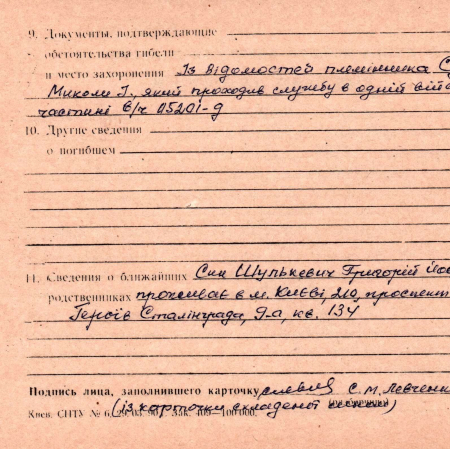 9. Документы, подтверждающие
обстоятельства гибели
и место захоронения Із відомостей племінника
Миколи Г., який проходив службу в одній
частині в/ч 05201-д
10. Другие сведения
о погибшем
11. Сведения о ближайших Син Шулькевич Григорій
родственниках проживає в м. Києві, 210, проспект
Героїв Сталінграда, 9-а, кв. 134
Подпись лица, заполнившего карточку С.М. Левченко
(із карточки складеної
Киев. СНТУ Зак. 100 000.